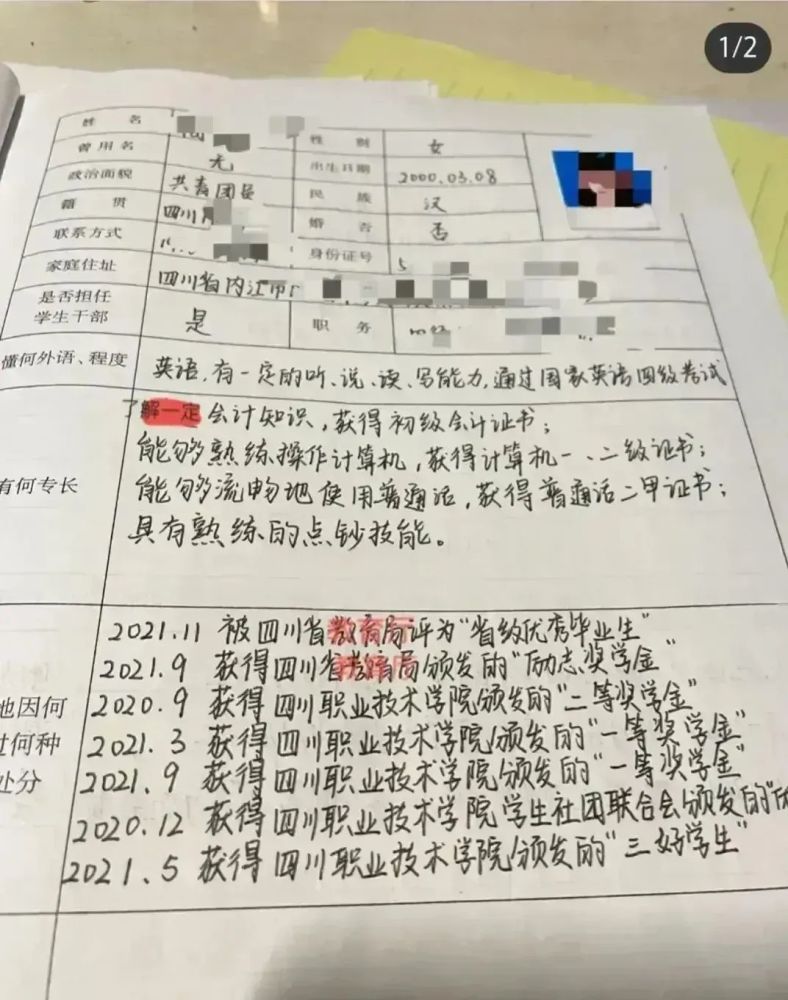 1/2
姓 名 性 别 女
曾用名 无 出生日期 2000.03.08
政治面貌 共青团员 民 族 汉
籍 贯 四川 婚 否 否
联系方式 身份证号 5
家庭住址 四川省内江市
是否担任
学生干部 是 职 务
懂何外语、程度 英语,有一定的听、说、读、写能力,通过国家英语四级考试
了解一定会计知识,获得初级会计证书;
能够熟练操作计算机,获得计算机一、二级证书;
有何专长 能够流畅地使用普通话,获得普通话二甲证书;
具有熟练的点钞技能。
2021.11 被四川省教育局评为“省级优秀毕业生”
2021.9 获得四川省教育局颁发的“励志奖学金”
地因何 2020.9 获得四川职业技术学院颁发的“二等奖学金”
过何种 2021.3 获得四川职业技术学院颁发的“一等奖学金”
处分 2021.9 获得四川职业技术学院颁发的“一等奖学金”
2020.12 获得四川职业技术学院学生社团联合会颁发的“
2021.5 获得四川职业技术学院颁发的“三好学生”